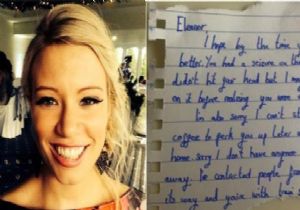 Eleanor,
I hope by the time
better. You had a seizure on the
didn't hit your head but I
on it before making you
to say sorry I can't st
coffee to perk you up later
home. Sorry I don't have anyone
away. I've contacted people from
its way and you're with train